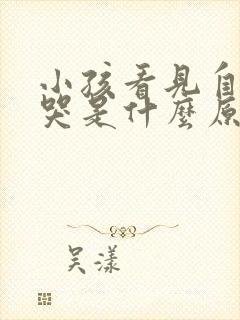 小孩看見自
哭是什麼原
吴漾